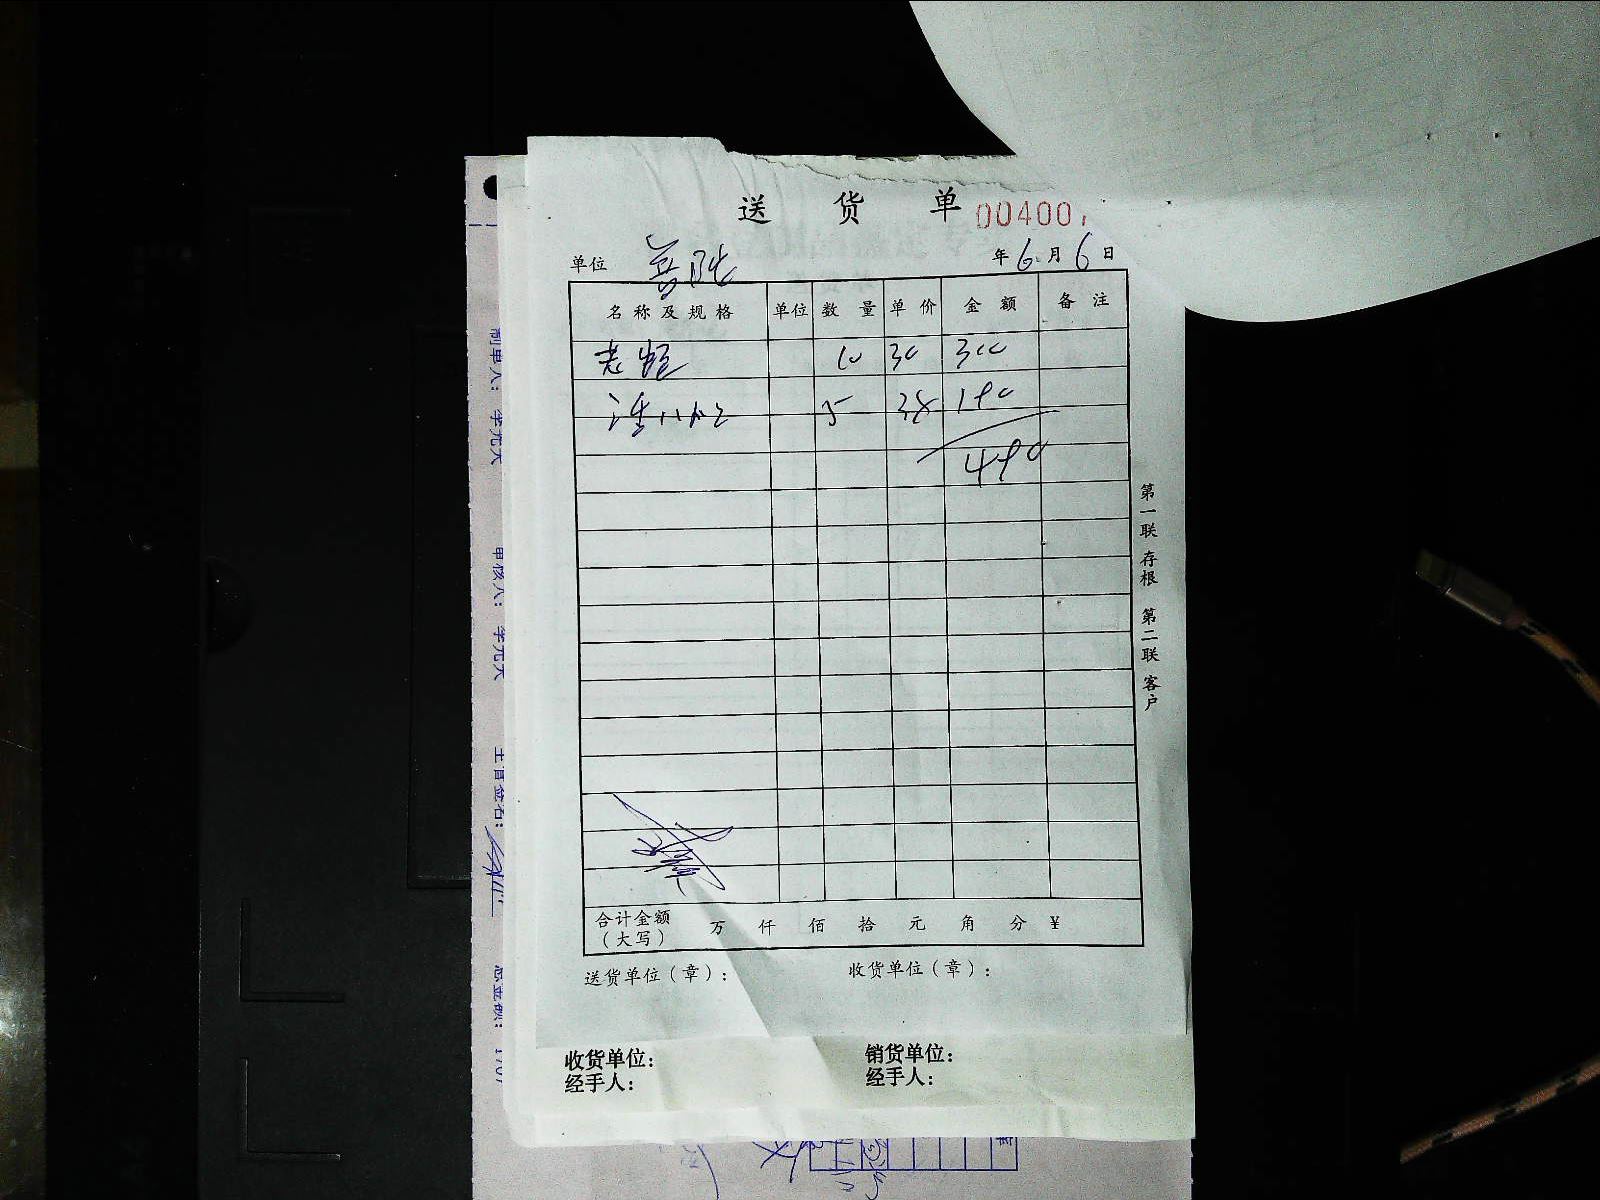 送 货 单 00400
单位 普陀 年 6 月 6 日
名称及规格 单位 数 量 单 价 金 额 备 注
老 10 30 300
5 38 190
490
合计金额(大写) 万 仟 佰 拾 元 角 分 ¥
送货单位(章): 收货单位(章):
第一联 存根 第二联 客户
收货单位: 销货单位:
经手人: 经手人:
制单人:
审核人:
主管签名:
总金额: